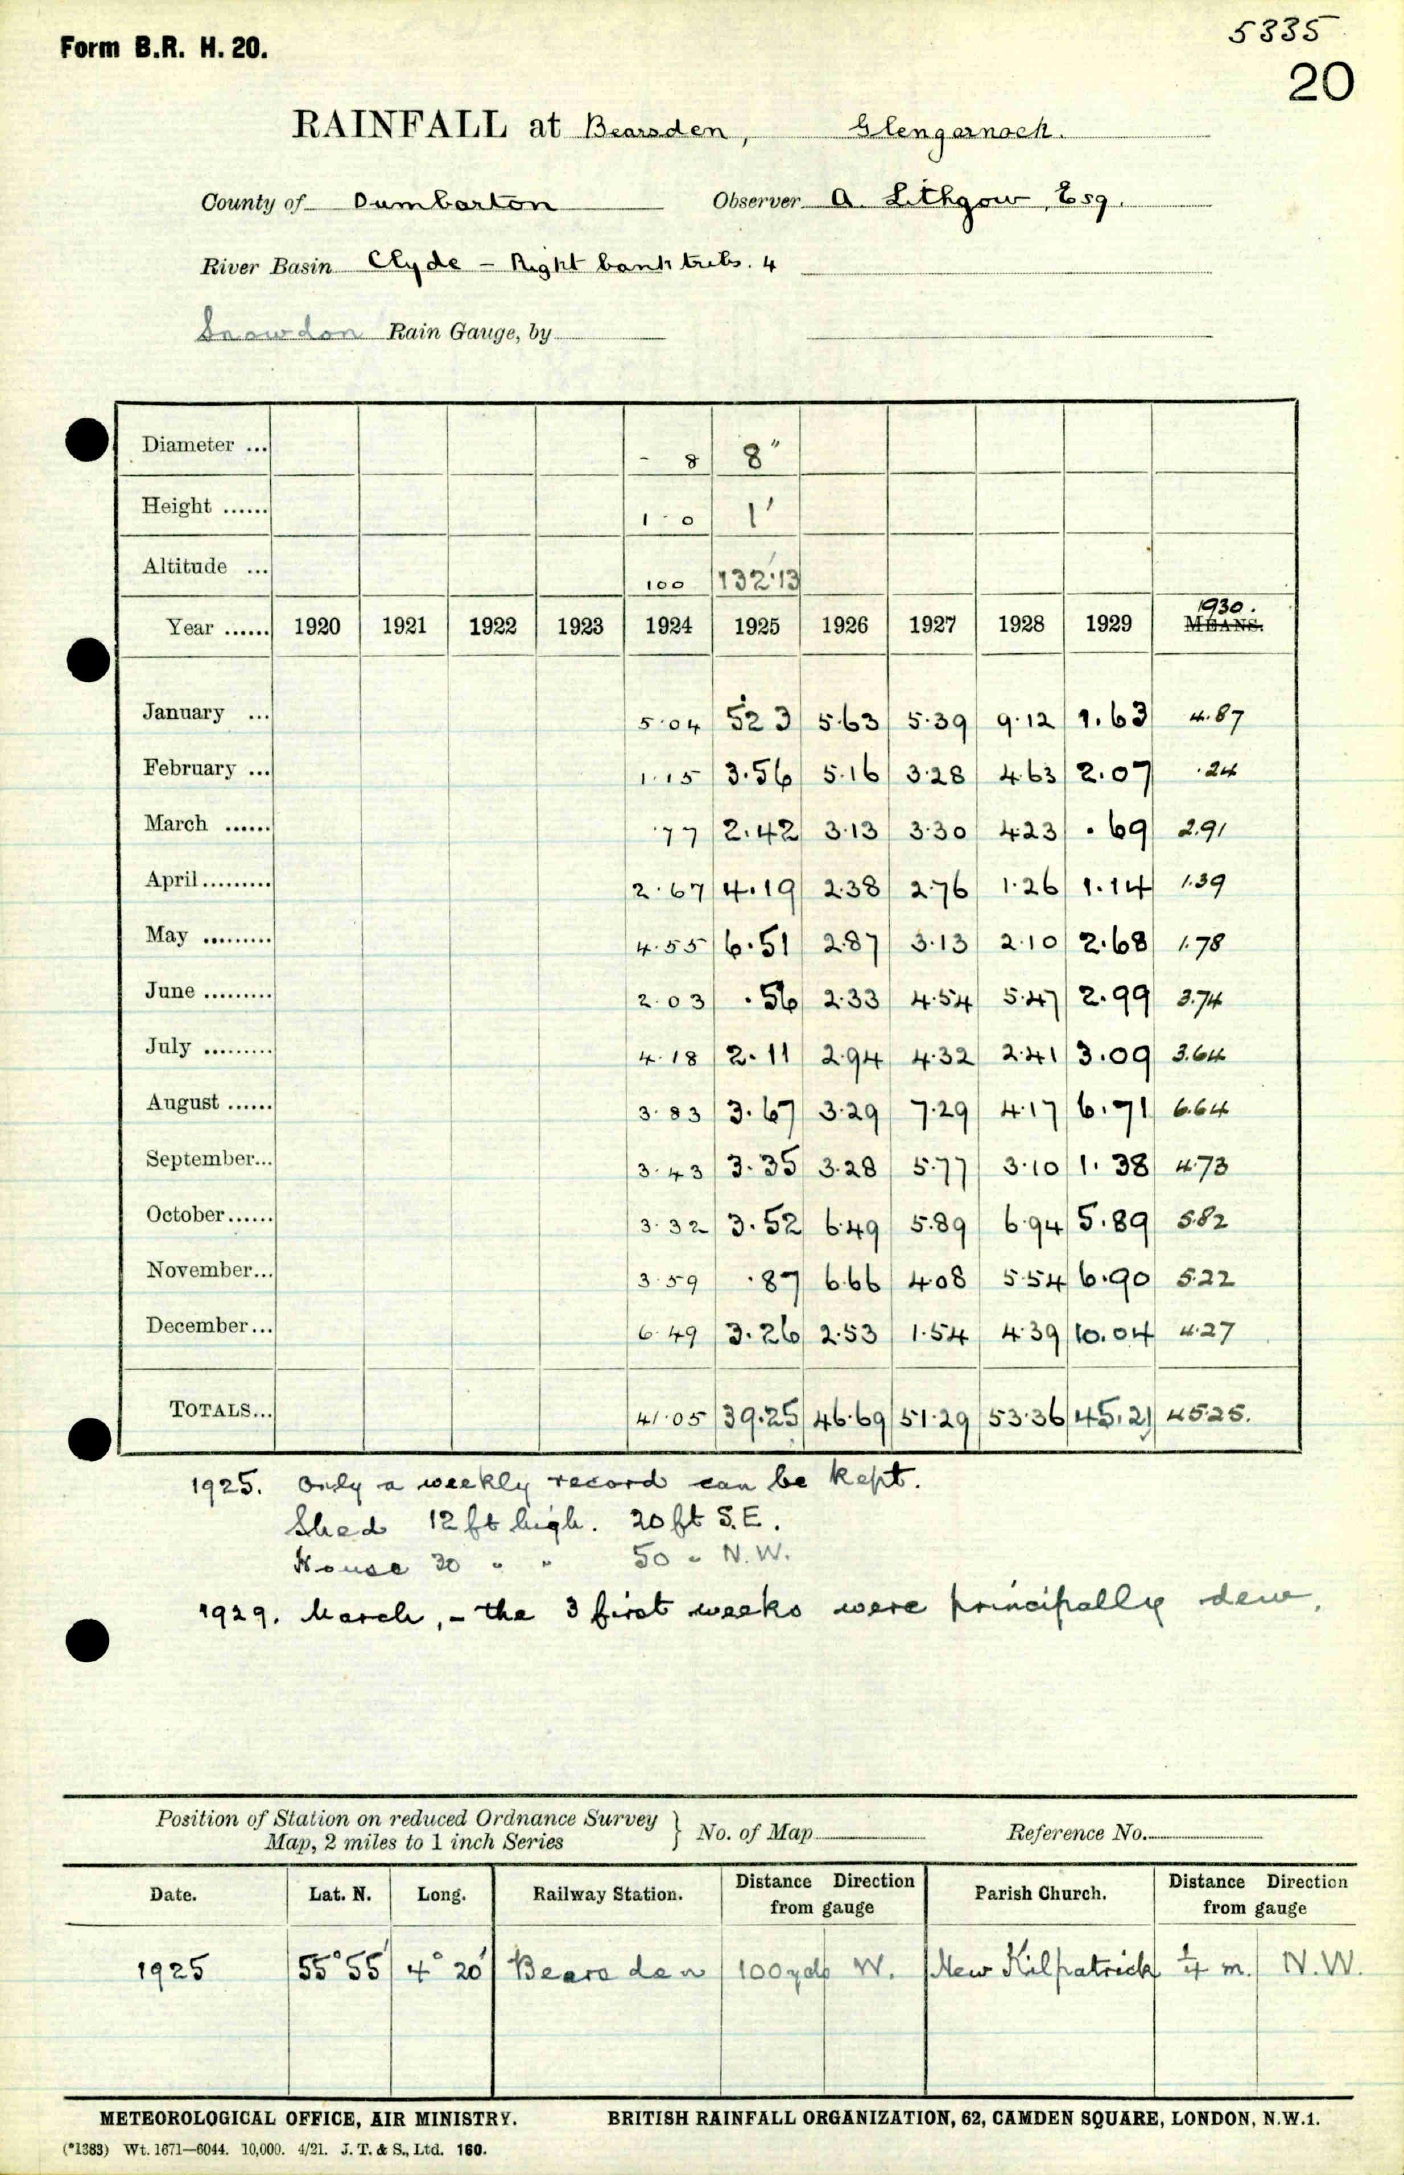 Form B.R. H. 20.
5335
20
RAINFALL at Bearsden, Glengarnock.
County of Dumbarton Observer A. Lithgow, Esq.
River Basin Clyde – Right bank tribs. 4
Snowdon Rain Gauge, by
Diameter ... - 8 8"
Height ...... 1 - 0 1'
Altitude ... 100 132·13
1930.
Year ...... 1920 1921 1922 1923 1924 1925 1926 1927 1928 1929 MEANS.
January ... 5·04 5·23 5·63 5·39 9·12 1.63 4.87
February ... 1·15 3.56 5·16 3·28 4·63 2.07 ·24
March ...... ·77 2.42 3·13 3·30 4·23 .69 2.91
April......... 2·67 4.19 2·38 2·76 1·26 1.14 1.39
May ......... 4·55 6.51 2·87 3·13 2·10 2.68 1.78
June ......... 2·03 .56 2·33 4·54 5·47 2.99 3.74
July ......... 4·18 2.11 2·94 4·32 2·41 3.09 3.64
August ...... 3·83 3.67 3·29 7·29 4·17 6.71 6.64
September... 3·43 3.35 3·28 5·77 3·10 1.38 4.73
October...... 3·32 3.52 6·49 5·89 6·94 5.89 5.82
November... 3·59 ·87 6·66 4·08 5·54 6.90 5.22
December... 6·49 3.26 2·53 1·54 4·39 10.04 4.27
TOTALS... 41·05 39.25 46·69 51·29 53·36 45.21 45.25.
1925. Only a weekly record can be kept.
Shed 12 ft high. 20 ft S.E.
House 30 " " 50 " N.W.
1929. March, – the 3 first weeks were principally dew.
Position of Station on reduced Ordnance Survey
Map, 2 miles to 1 inch Series } No. of Map Reference No.
Date. Lat. N. Long. Railway Station. Distance Direction from gauge Parish Church. Distance Direction from gauge
1925 55° 55' 4° 20' Bearsden 100 yds W. New Kilpatrick ¼ m. N.W.
METEOROLOGICAL OFFICE, AIR MINISTRY. BRITISH RAINFALL ORGANIZATION, 62, CAMDEN SQUARE, LONDON, N.W.1.
(*1383) Wt. 1671—6044. 10,000. 4/21. J. T. & S., Ltd. 160.